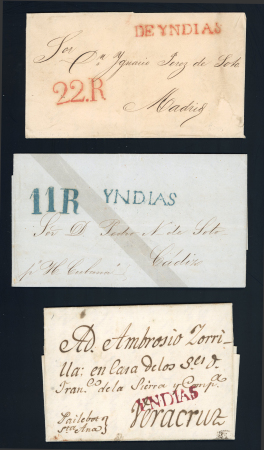 DE YNDIAS
Sor
Dn. Ygnacio Perez de Soto
22.R
Madrid
11R YNDIAS
Sor D. Pedro N. de Soto
Cádiz
pr. H. Cubana
A D. Ambrosio Zorri-
lla: en Casa de los Sres. D.
Franco. de la Sierra y Compa.
YNDIAS
Pailebot
Sta. Ana
Veracruz